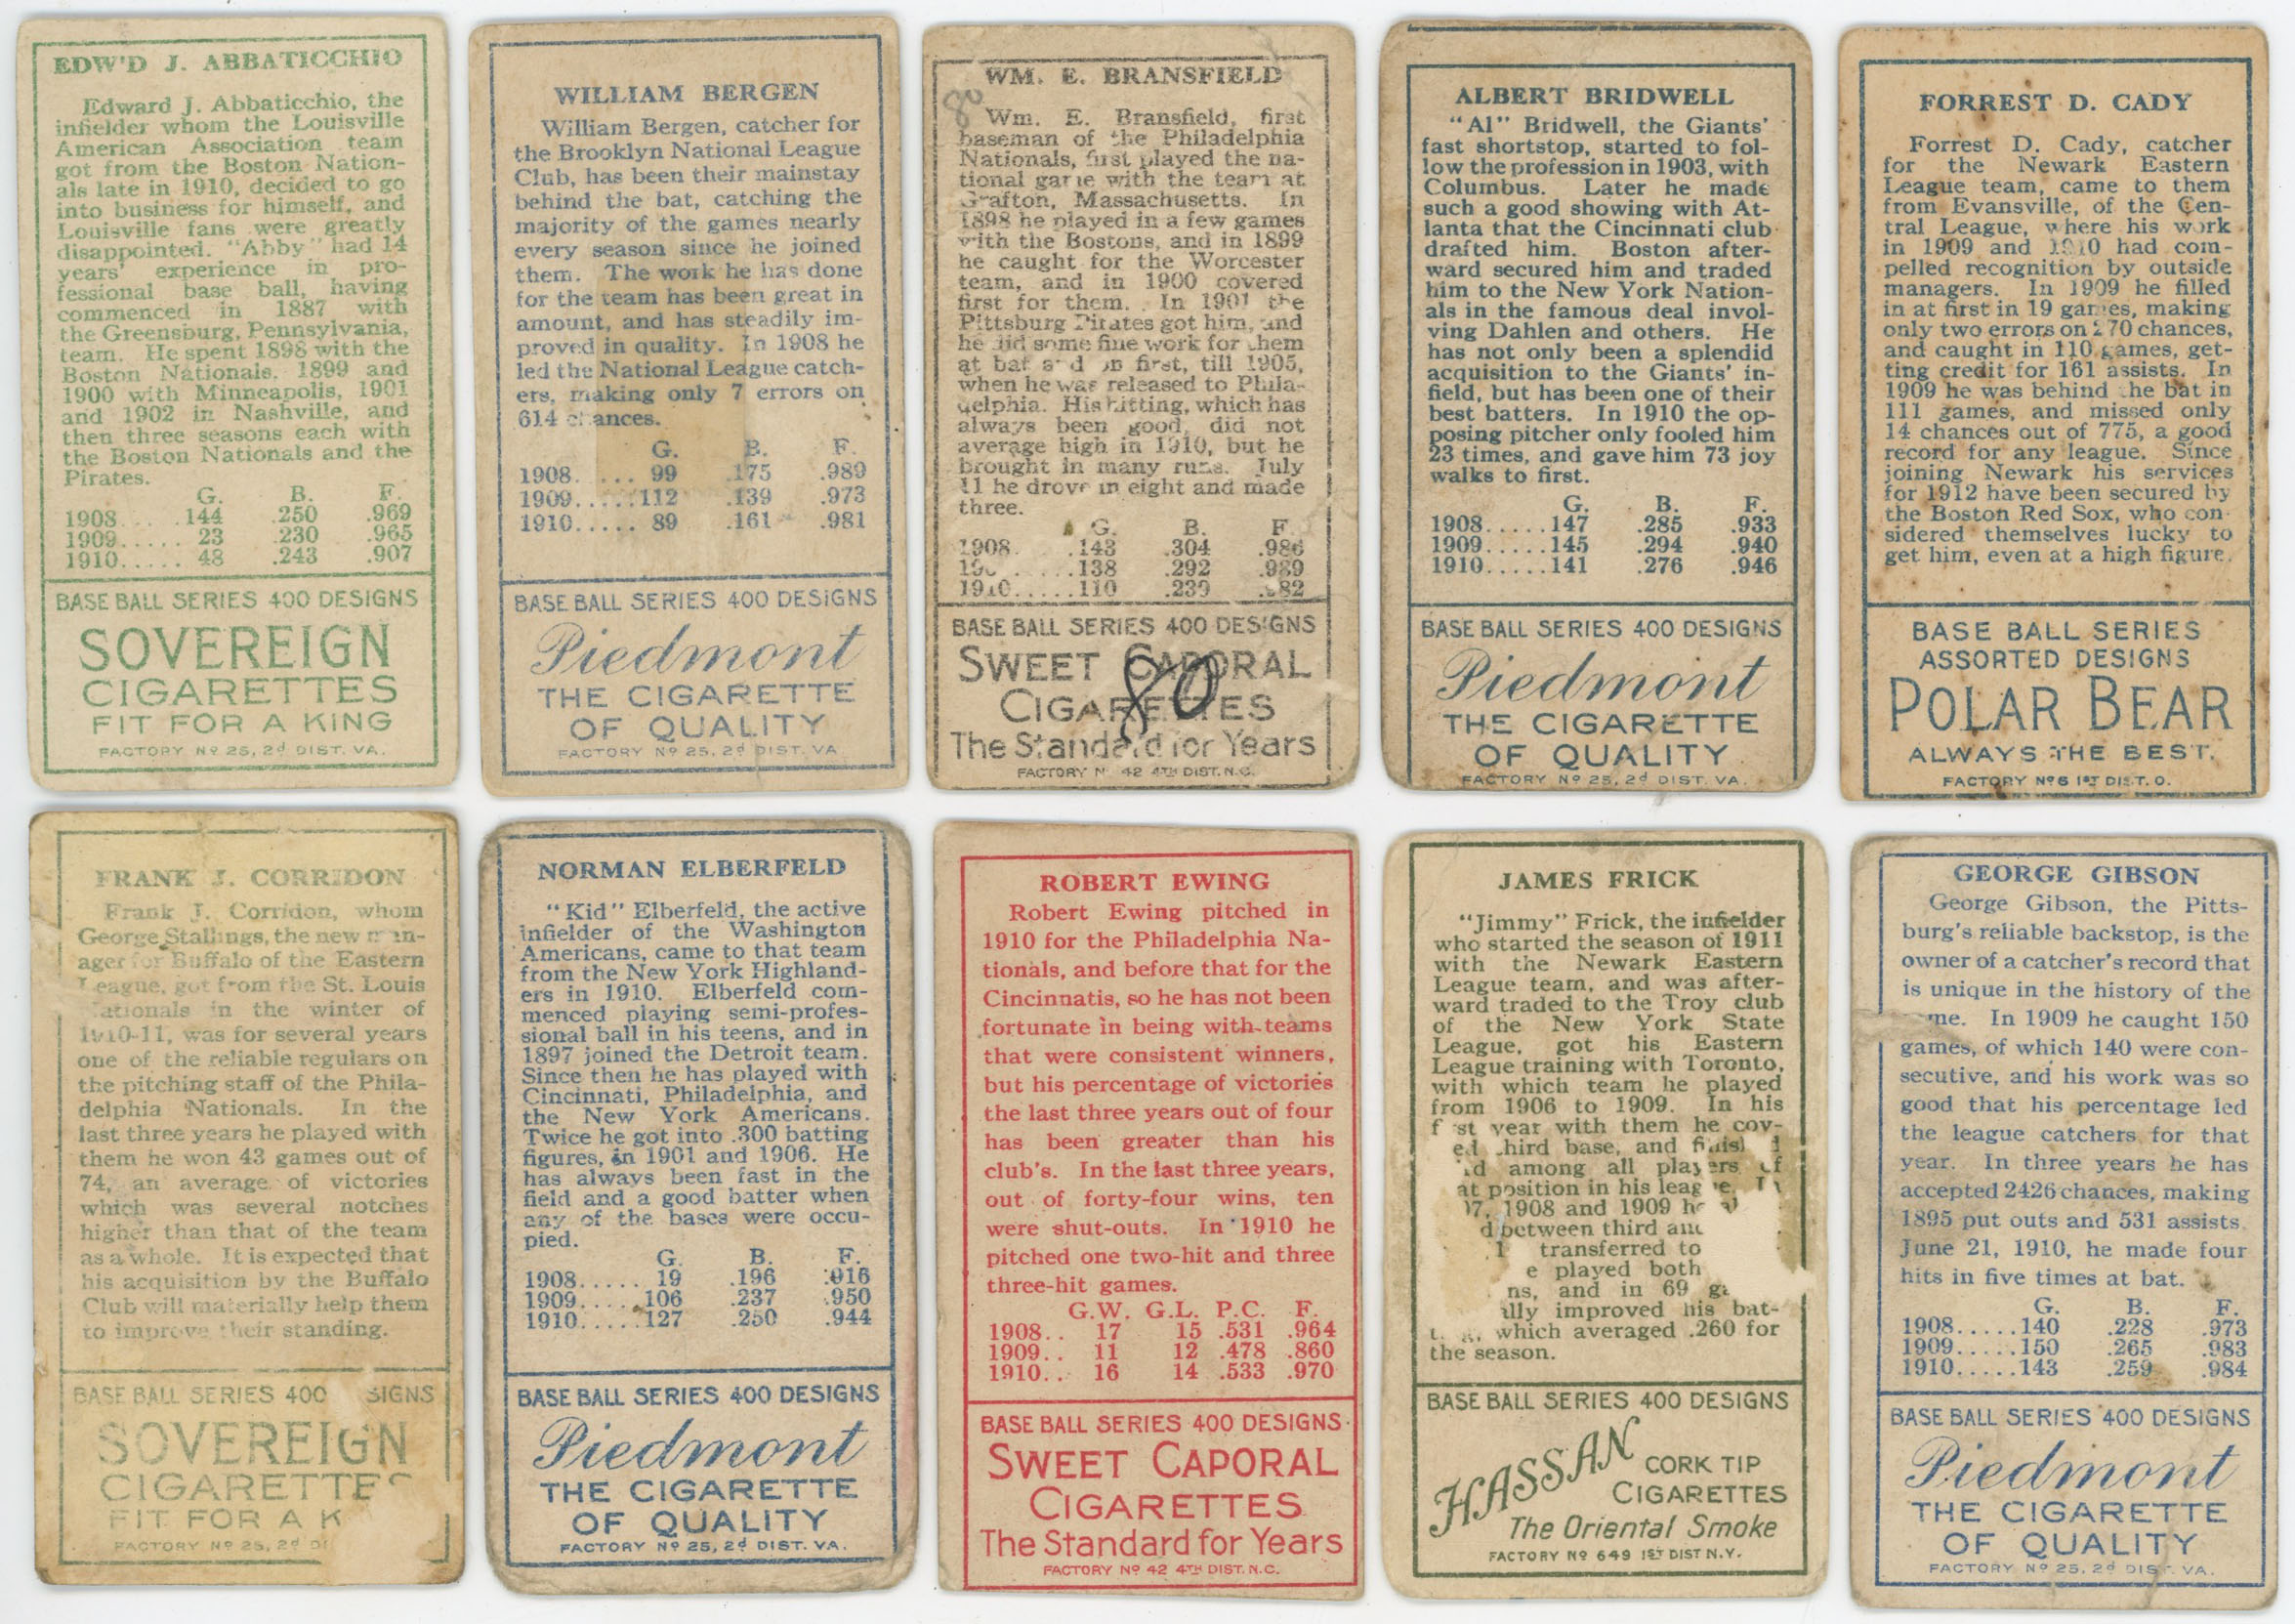 EDW'D J. ABBATICCHIO
Edward J. Abbaticchio, the
infielder whom the Louisville
American Association team
got from the Boston Nation-
als late in 1910, decided to go
into business for himself, and
Louisville fans were greatly
disappointed. "Abby" had 14
years' experience in pro-
fessional base ball, having
commenced in 1887 with
the Greensburg, Pennsylvania,
team. He spent 1898 with the
Boston Nationals. 1899 and
1900 with Minneapolis, 1901
and 1902 in Nashville, and
then three seasons each with
the Boston Nationals and the
Pirates.
G. B. F.
1908.... .144 .250 .969
1909..... 23 .230 .965
1910..... 48 .243 .907
BASE BALL SERIES 400 DESIGNS
SOVEREIGN
CIGARETTES
FIT FOR A KING
FACTORY Nº 25, 2d DIST. VA.
WILLIAM BERGEN
William Bergen, catcher for
the Brooklyn National League
Club, has been their mainstay
behind the bat, catching the
majority of the games nearly
every season since he joined
them. The work he has done
for the team has been great in
amount, and has steadily im-
proved in quality. In 1908 he
led the National League catch-
ers, making only 7 errors on
614 chances.
G. B. F.
1908. ... 99 .175 .989
1909......112 .139 .973
1910...... 89 .161 .981
BASE BALL SERIES 400 DESIGNS
Piedmont
THE CIGARETTE
OF QUALITY
FACTORY Nº 25, 2d DIST. VA
WM. E. BRANSFIELD
80
Wm. E. Bransfield, first
baseman of the Philadelphia
Nationals, first played the na-
tional game with the team at
Grafton, Massachusetts. In
1898 he played in a few games
with the Bostons, and in 1899
he caught for the Worcester
team, and in 1900 covered
first for them. In 1901 the
Pittsburg Pirates got him, and
he did some fine work for them
at bat and on first, till 1905,
when he was released to Phila-
delphia. His hitting, which has
always been good, did not
average high in 1910, but he
brought in many runs. July
11 he drove in eight and made
three.
G. B. F.
1908. .143 .304 .986
19 ......138 .292 .989
1910.....110 .239 . 82
BASE BALL SERIES 400 DESIGNS
SWEET CAPORAL
CIGARETTES
80
The Standard for Years
FACTORY Nº 42 4TH DIST. N.C.
ALBERT BRIDWELL
"Al" Bridwell, the Giants'
fast shortstop, started to fol-
low the profession in 1903, with
Columbus. Later he made
such a good showing with At-
lanta that the Cincinnati club
drafted him. Boston after-
ward secured him and traded
him to the New York Nation-
als in the famous deal invol-
ving Dahlen and others. He
has not only been a splendid
acquisition to the Giants' in-
field, but has been one of their
best batters. In 1910 the op-
posing pitcher only fooled him
23 times, and gave him 73 joy
walks to first.
G. B. F.
1908.....147 .285 .933
1909.....145 .294 .940
1910.....141 .276 .946
BASE BALL SERIES 400 DESIGNS
Piedmont
THE CIGARETTE
OF QUALITY
FACTORY Nº 25, 2d DIST. VA.
FORREST D. CADY
Forrest D. Cady, catcher
for the Newark Eastern
League team, came to them
from Evansville, of the Cen-
tral League, where his work
in 1909 and 1910 had com-
pelled recognition by outside
managers. In 1909 he filled
in at first in 19 games, making
only two errors on 270 chances,
and caught in 110 games, get-
ting credit for 161 assists. In
1909 he was behind the bat in
111 games, and missed only
14 chances out of 775, a good
record for any league. Since
joining Newark his services
for 1912 have been secured by
the Boston Red Sox, who con-
sidered themselves lucky to
get him, even at a high figure.
BASE BALL SERIES
ASSORTED DESIGNS
POLAR BEAR
ALWAYS THE BEST.
FACTORY Nº 6 1ST DIST. O.
FRANK J. CORRIDON
Frank J. Corridon, whom
George Stallings, the new man-
ager for Buffalo of the Eastern
League, got from the St. Louis
Nationals in the winter of
1910-11, was for several years
one of the reliable regulars on
the pitching staff of the Phila-
delphia Nationals. In the
last three years he played with
them he won 43 games out of
74, an average of victories
which was several notches
higher than that of the team
as a whole. It is expected that
his acquisition by the Buffalo
Club will materially help them
to improve their standing.
BASE BALL SERIES 400 SIGNS
SOVEREIGN
CIGARETTES
FIT FOR A K
FACTORY Nº 25, 2d DI
NORMAN ELBERFELD
"Kid" Elberfeld, the active
infielder of the Washington
Americans, came to that team
from the New York Highland-
ers in 1910. Elberfeld com-
menced playing semi-profes-
sional ball in his teens, and in
1897 joined the Detroit team.
Since then he has played with
Cincinnati, Philadelphia, and
the New York Americans.
Twice he got into .300 batting
figures, in 1901 and 1906. He
has always been fast in the
field and a good batter when
any of the bases were occu-
pied.
G. B. F.
1908...... 19 .196 .916
1909.....106 .237 .950
1910......127 .250 .944
BASE BALL SERIES 400 DESIGNS
Piedmont
THE CIGARETTE
OF QUALITY
FACTORY Nº 25, 2d DIST. VA.
ROBERT EWING
Robert Ewing pitched in
1910 for the Philadelphia Na-
tionals, and before that for the
Cincinnatis, so he has not been
fortunate in being with teams
that were consistent winners,
but his percentage of victories
the last three years out of four
has been greater than his
club's. In the last three years,
out of forty-four wins, ten
were shut-outs. In 1910 he
pitched one two-hit and three
three-hit games.
G.W. G.L. P.C. F.
1908.. 17 15 .531 .964
1909.. 11 12 .478 .860
1910.. 16 14 .533 .970
BASE BALL SERIES 400 DESIGNS
SWEET CAPORAL
CIGARETTES
The Standard for Years
FACTORY Nº 42 4TH DIST. N.C.
JAMES FRICK
"Jimmy" Frick, the infielder
who started the season of 1911
with the Newark Eastern
League team, and was after-
ward traded to the Troy club
of the New York State
League, got his Eastern
League training with Toronto,
with which team he played
from 1906 to 1909. In his
first year with them he cov-
ed third base, and finished
d among all players of
at position in his league. In
07, 1908 and 1909 he
d between third and
transferred to
e played both
ns, and in 69
ally improved his bat-
which averaged .260 for
the season.
BASE BALL SERIES 400 DESIGNS
HASSAN CORK TIP
CIGARETTES
The Oriental Smoke
FACTORY Nº 649 1ST DIST N.Y.
GEORGE GIBSON
George Gibson, the Pitts-
burg's reliable backstop, is the
owner of a catcher's record that
is unique in the history of the
me. In 1909 he caught 150
games, of which 140 were con-
secutive, and his work was so
good that his percentage led
the league catchers for that
year. In three years he has
accepted 2426 chances, making
1895 put outs and 531 assists.
June 21, 1910, he made four
hits in five times at bat.
G. B. F.
1908.....140 .228 .973
1909.....150 .265 .983
1910.....143 .259 .984
BASE BALL SERIES 400 DESIGNS
Piedmont
THE CIGARETTE
OF QUALITY
FACTORY Nº 25, 2d DIST. VA.